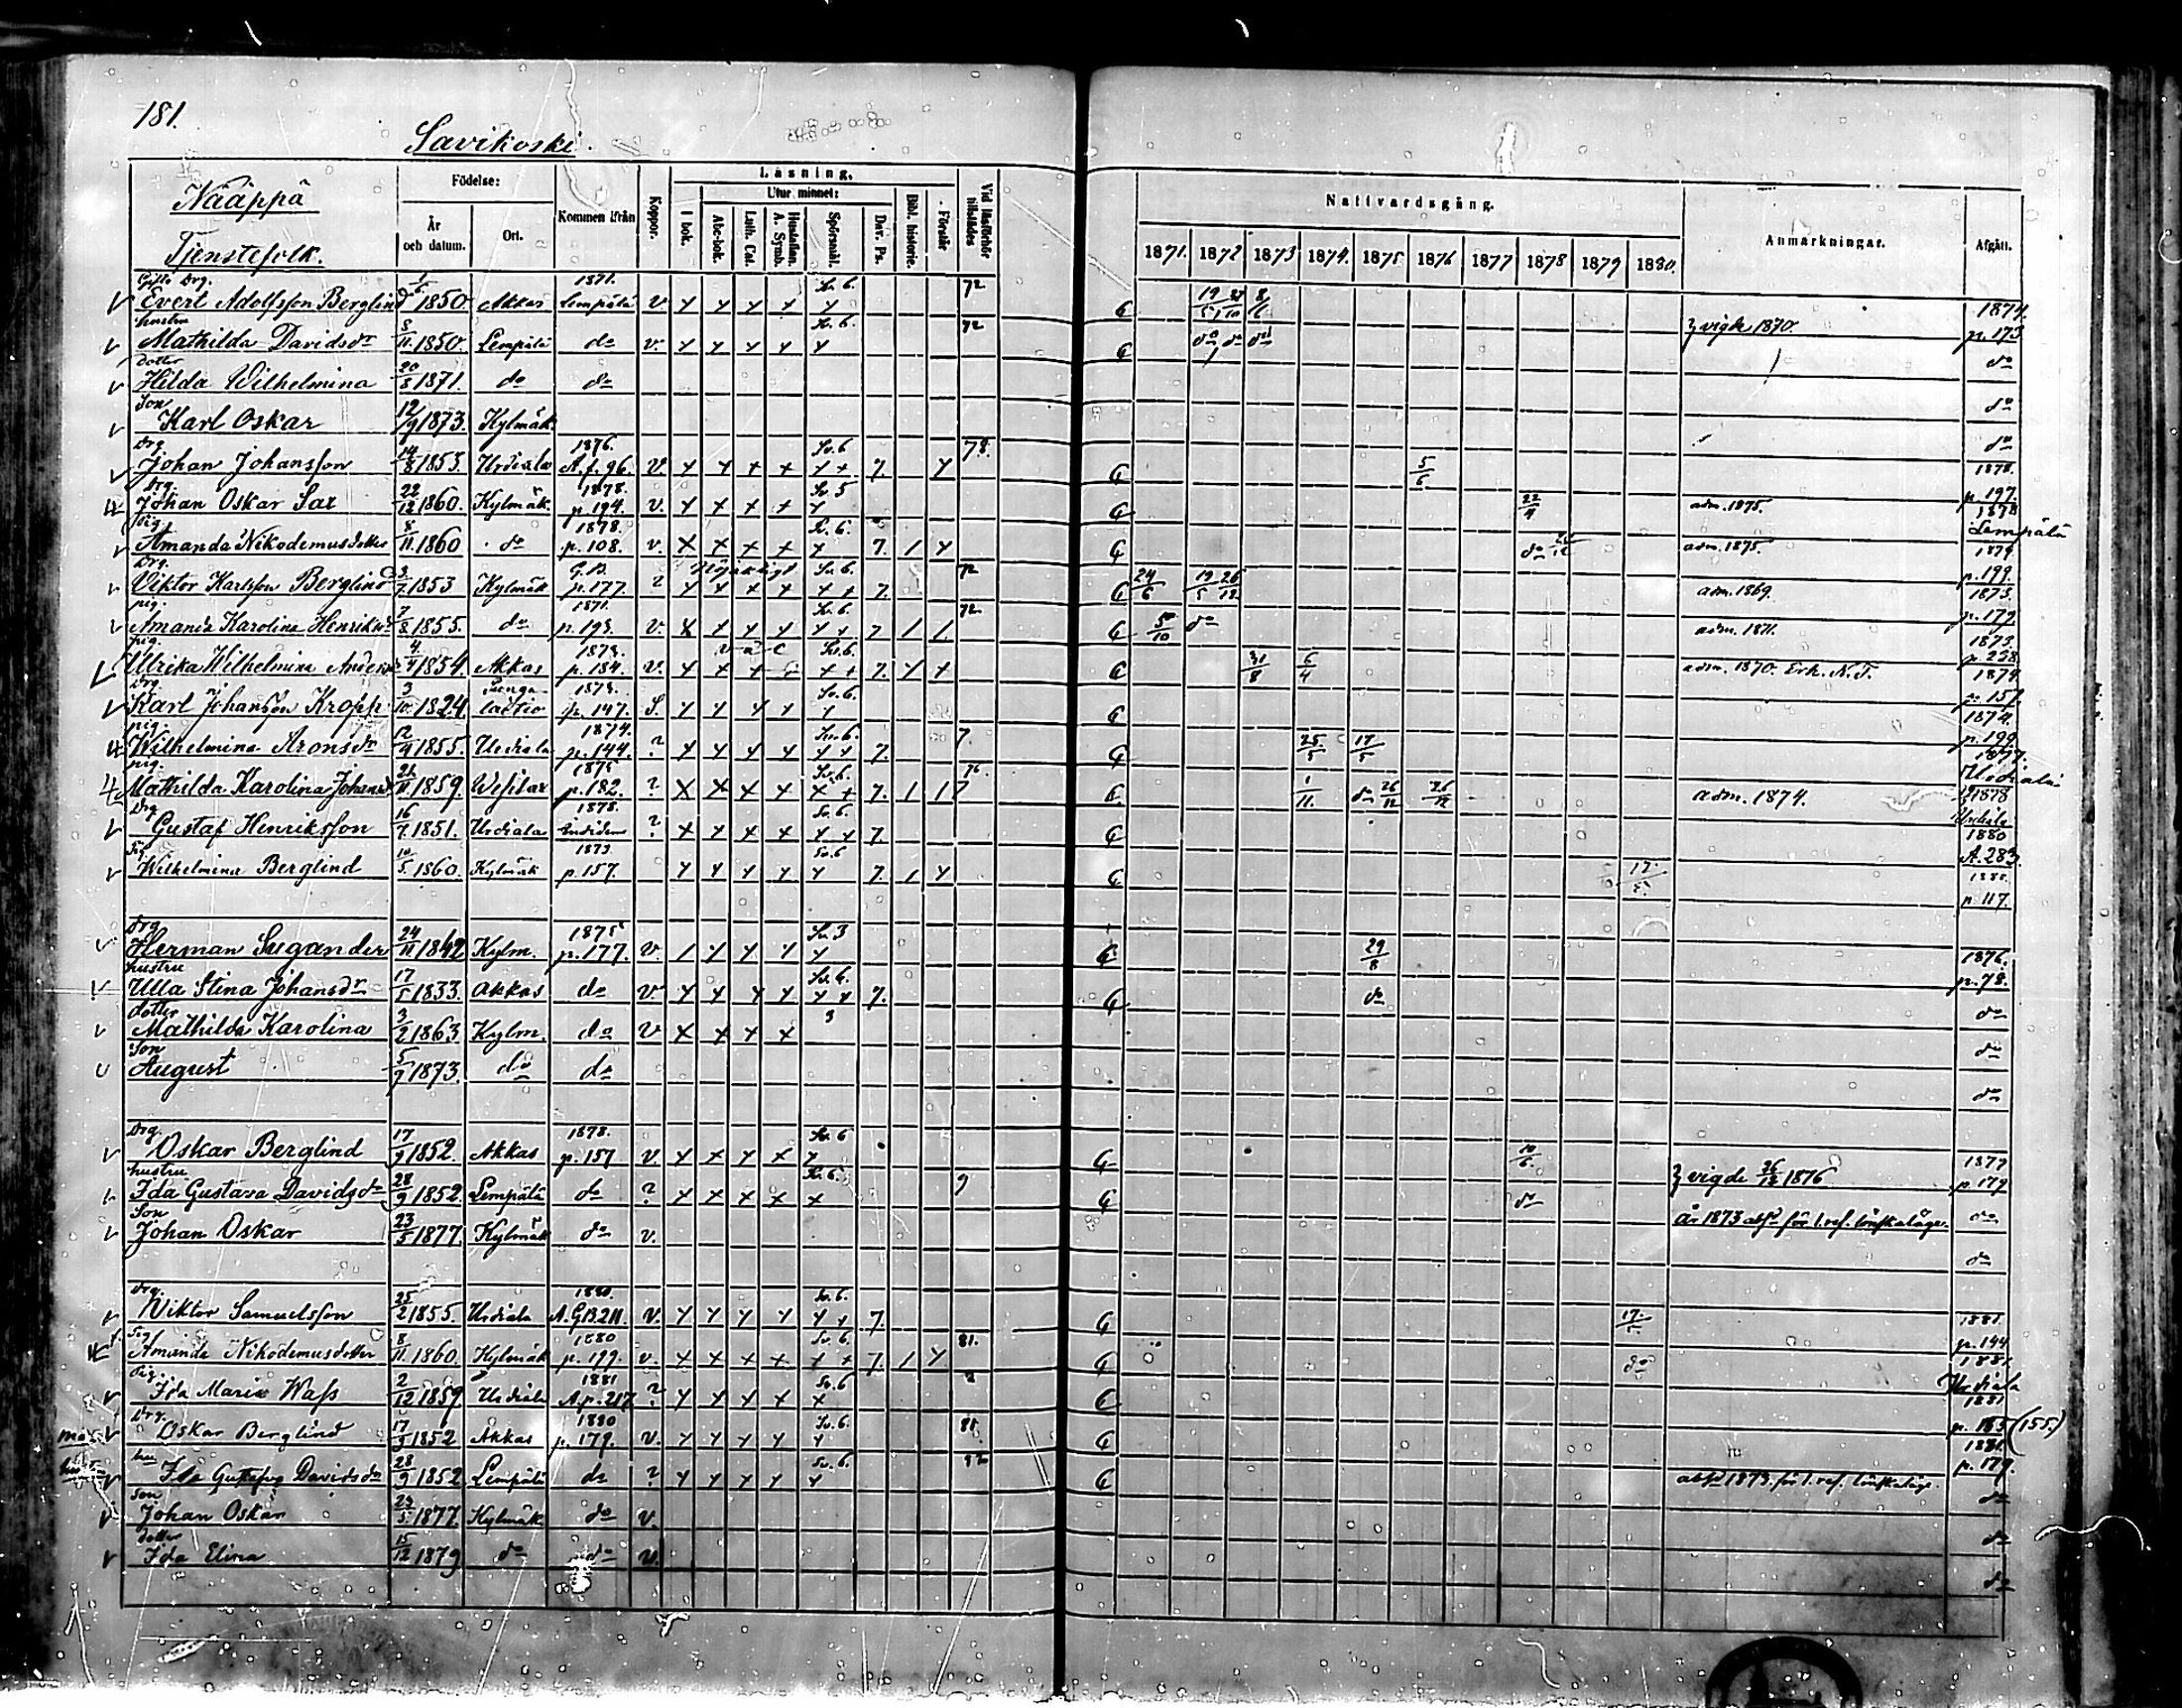 181.
Savikoski.
Nääppä
Tjenstefolk.
Födelse: År och datum. Ort. Kommen ifrån Koppor. Läsning. I bok. Utur minnet: Abc-bok. Luth. Cat. Hustaflan. A. Symb. Spörsmål. Dav. Ps. Bibl. historie. Förstår Vid läsförhör tillstädes
Nattvardsgång. 1871. 1872 1873 1874. 1875 1876 1877 1878 1879 1880. Anmärkningar. Afgått.
Gifte Drg. 1871. Sv. 6. 72
Evert Adolfsson Berglind 1850. Akkas Lempälä v. 1874. p. 173
hustru Sv. 6. 72
Mathilda Davidsdr 8/11 1850. Lempälä do v. vigde 1870. do
dotter
Hilda Wilhelmina 20/8 1871. do do do
Son
Karl Oskar 12/9 1873. Kylmäk. do
drg 1876. Sv. 6 78.
Johan Johansson 14/8 1853. Urdiala A.f. 96. V. 7. 5/6 1878. p. 197.
drg. 1878. Sv. 5
Johan Oskar Sax 22/12 1860. Kylmäk. p. 194. v. 22/4 adm. 1875. 1878 Lempälä
pig. 1878. Sv. 6.
Amanda Nikodemusdotter 8/11 1860 do p. 108. v. 7. do adm. 1875. 1879. p. 199.
Drg. Sv. 6.
Viktor Karlsson Berglind 3/7 1853 Kylmäk p. 177. ? 7. 24/6 19/5 26/12 adm. 1869. 1873. p. 179.
pig. 1871. Sv. 6. 72
Amanda Karolina Henriksdr 7/8 1855. do p. 193. v. 7 5/10 do adm. 1871. 1873. p. 238
pig. 1873. Sv. 6.
Ulrika Wilhelmina Andersdr 4/4 1854. Akkas p. 184. v. 7. 31/8 6/4 adm. 1870. Erh. N.T. 1874. p. 157.
drg. 1873. Sv. 6.
Karl Johansson Kropp 3/10 1824. p. 147. S. 1874. p. 199
pig. 1874. Sv. 6. 7.
Wilhelmina Aronsdr 12/9 1855. Urdiala p. 144. ? 7. 25/5 17/5 1877. Urdiala
pig. 1875 Sv. 6. 76.
Mathilda Karolina Johansdr 1859. Wesilax p. 182. ? 7. 1/11 do 26/12 26/12 adm. 1874. 1878 Urdiala
Drg 1878. Sv. 6.
Gustaf Henriksson 16/7 1851. Urdiala ? 7. 1880 A. 283.
Pig 1873. Sv. 6
Wilhelmina Berglind 10/5 1860. Kylmäk p. 157. 7. 17/5 p. 117.
Drg 1875 Sv. 3
Herman Sugander 24/11 1842 Kylm. p. 177. v. 29/8 1876. p. 78.
hustru Sv. 4.
Ulla Stina Johansdr 17/5 1833. Akkas do v. 7. do do
dotter 3
Mathilda Karolina 3/2 1863 Kylm. do v do
Son
August 5/9 1873. do do do
Drg. 1878. Sv. 6
Oskar Berglind 17/9 1852. Akkas p. 157 v. 10/6. 1879 p. 179
hustru Sv. 6. 9
Ida Gustava Davidsdr 28/9 1852. Lempälä do ? do vigde 26/12 1876 do
Son
Johan Oskar 23/5 1877. Kylmäk do v. år 1873 absd för 1. ref. lönskaläge. do
drg. 1880. Sv. 6.
Viktor Samuelsson 25/2 1855. Urdiala A.G.B. 211. v. 7. 17/5 1881. p. 144
1880 Sv. 6. 81.
Amanda Nikodemusdotter 8/11 1860. Kylmäk p. 199. v. 7. do 1881. Urdiala
Pig. 1881 Sv. 6
Ida Maria Wass 2/12 1859 Urdiala A.p. 217 ? 1881 p. 165 (155.)
Drg. 1880 Sv. 6. 81.
Oskar Berglind 17/9 1852 Akkas p. 179. v. 1881. p. 179.
hu Sv. 6. 82
Ida Gustafva Davidsdr 28/9 1852. Lempälä do ? absd 1873. för 1. ref. lönskaläge. do
son
Johan Oskar 23/5 1877. Kylmäk do v. do
dotter
Ida Elina 15/12 1879 do do v. do